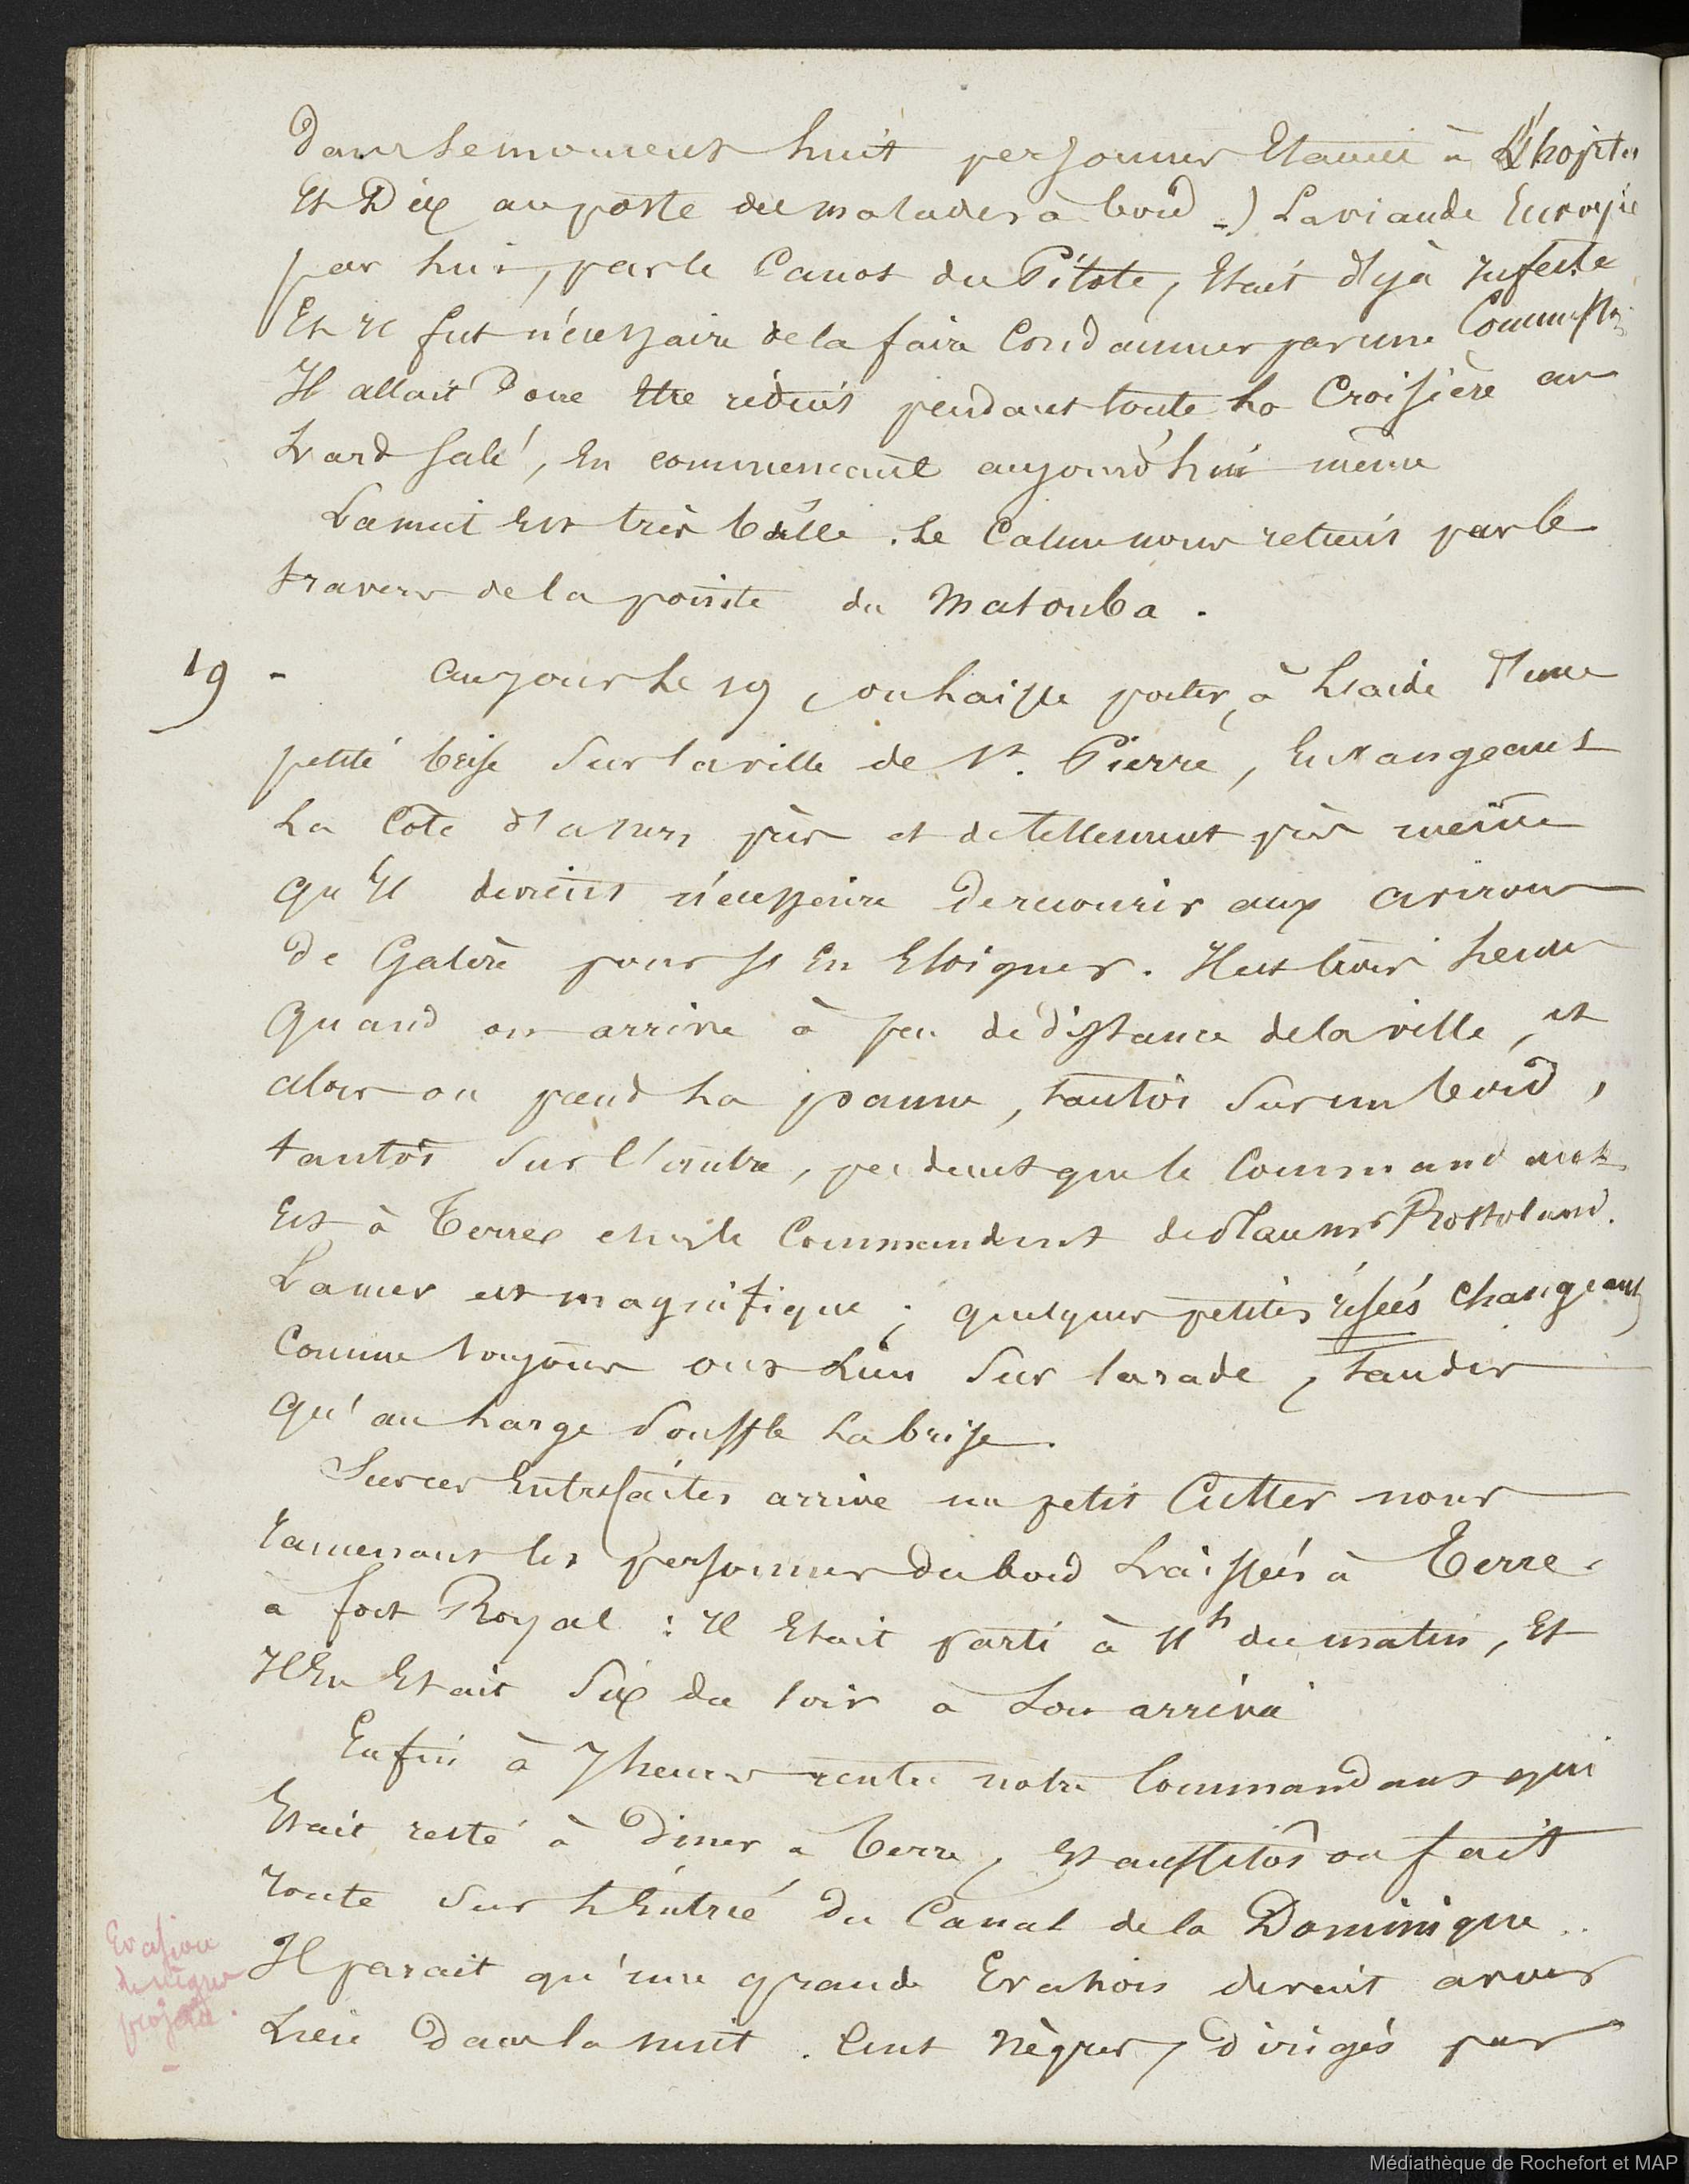 Dans le moment huit personnes Etaient à L'hopital
Et Dix au poste des malades à bord -) La viande Envoyée
par lui, par le Canot du Pilote, Etait déjà infecte
Et il fut nécessaire de la faire Condamner par une Commission
Il allait donc être réduit pendant toute La Croisière au
Lard salé, En commencant aujourd'hui même
La nuit Est très bélle. Le Calme nous retient par le
travers de la pointe du Matouba.
19 - au jour Le 19, on Laisse porter, à L'aide d'une
petite brise Sur la ville de St. Pierre, En rangeant
La Côte d'assez près et de tellement près même
qu'il devient nécessaire De recourir aux avirons
De Galère pour s'en Eloigner. Il est trois heures
Quand on arrive à peu de distance de la ville, et
alors on prend La panne, tantôt Sur un bord,
tantôt Sur l'autre, pendant que le Commandant
Est à Terre chez le Commandant de place Mr Rostoland.
La mer est magnifique ; quelques petites risées Changeant
Comme toujours ont Lieu Sur la rade, tandis
Qu'au Large Souffle La brise.
Sur ces Entrefaites arrive un petit Cutter nous
ramenant les personnes du bord Laissées à Terre
à fort Royal : Il Etait parti à 11h du matin, Et
Il En Etait Six du soir à Son arrivée
Enfin à 7 heures rentre notre Commandant qui
Etait resté à Diner à Terre, Et aussitôt on fait
route Sur L'Entrée Du Canal de la Dominique.
Il parait qu'une grande Evasion devait avoir
Lieu Dans la nuit. Cent Nègres, Dirigés par
Evasion
de nègres
projeté.